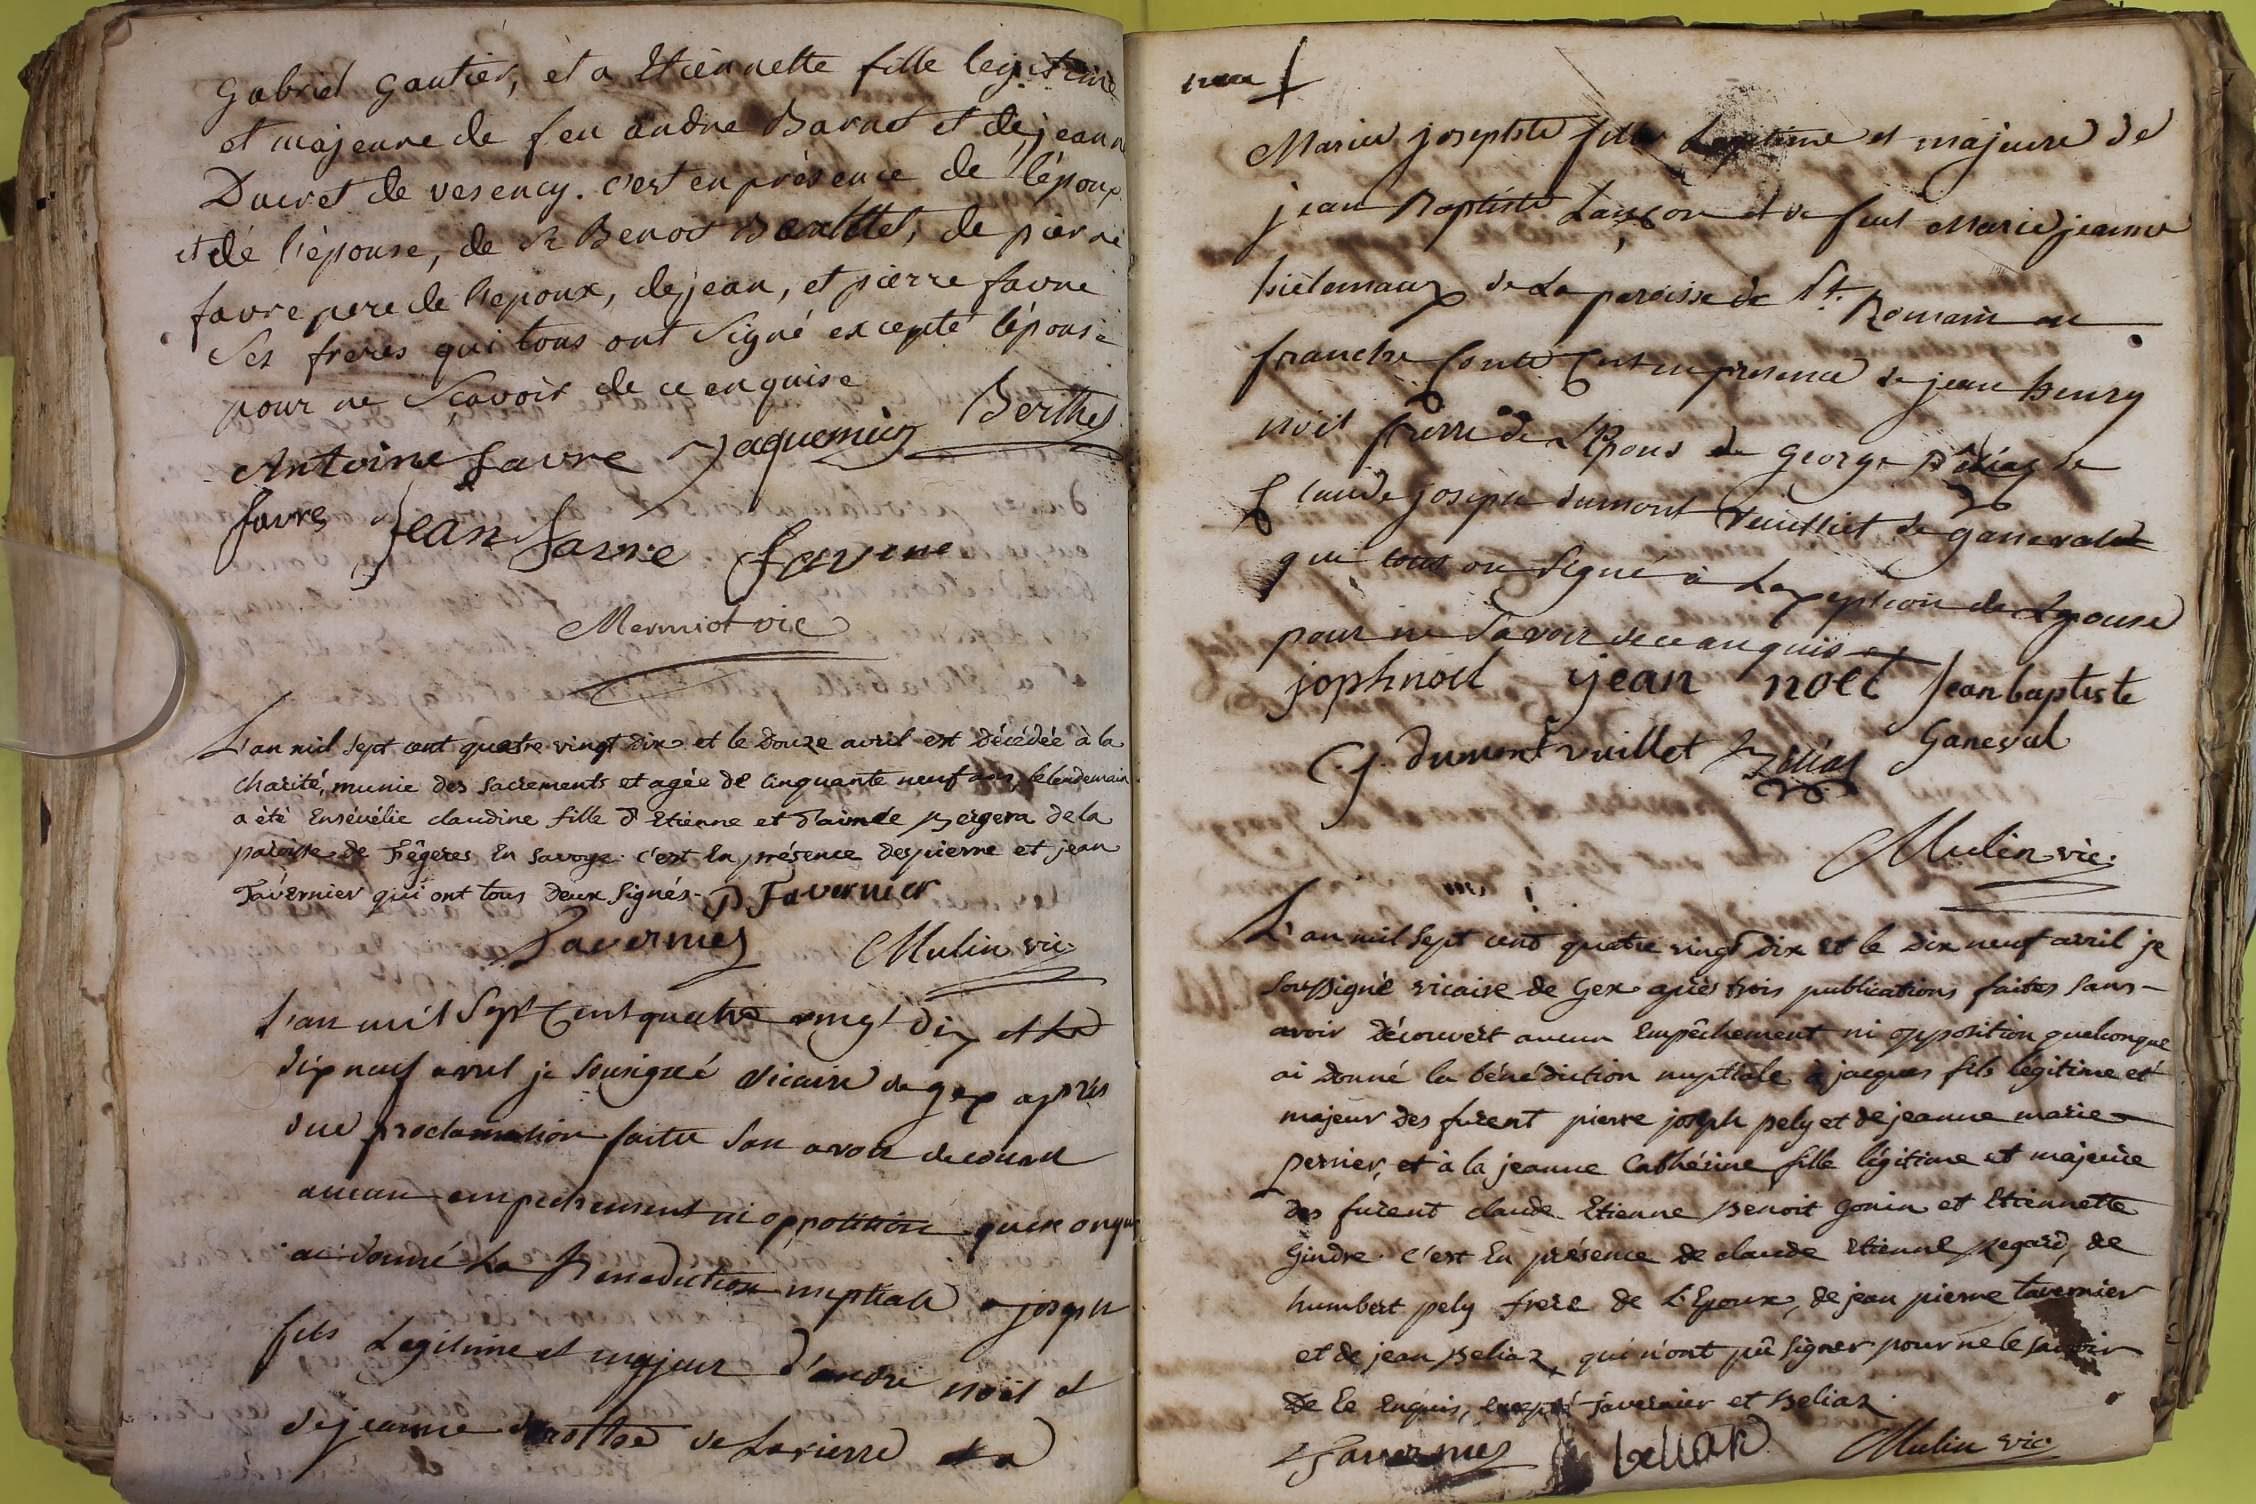 Gabriel Gautier, et a Etiennette fille legitime
et majeure de feu andre Barnet et de jeann
Ducret de vesency. c'est en présence de l'époux
et de l'épouse, de Sr Benoit Berthet, de pierre
favre pere de l'epoux, de jean, et pierre favre
Ses freres qui tous ont Signé excepté l'épouse
pour ne Sçavoir de ce enquise
Antoine favre Jaquemier Berthet
favre Jean Favre favre
Mermiot vic
L'an mil sept cent quatre vingt dix et le Douze avril est décédée à la
charité, munie des sacrements et agée de Cinquante neuf ans, le lendemain
a été Ensévélie claudine fille d'Etienne et d'aimée de la
paroisse de Fêgeres En Savoye. c'est En présence des pierre et jean
Tavernier qui ont tous Deux Signés. P Tavernier
Tavernier Mulin vic.
L'an mil Sept Cent quatre vingt dix et le
dix neuf avril je Sousigné vicaire de gex après
une proclamation faitte San avoir decouvu
aucun empechement ni oppotition quelx onque
ai donné La Benediction nuptiale a joseph
fils Legitime et majeur d'andre noël et
de jeanne de Lavierre et a
Marie josephte fille Legitime et majeure de
jean Baptiste Lançon et de feue Marie jeanne
de La paroisse de St. Romain en
franche Conté C'est en presence de jean henry
noël frerre de L'Epous de George Béliaz de
Claude joseph dumont Vuilliet de ganeval
qui tous on Signé à L'exeption de Lepouse
pour ne Savoir de ce anquis
joph noël jean noel Jean baptiste
C. j. Dumont vuillet Béliaz Ganeval
Mulin vic.
L'an mil Sept cent quatre vingt Dix Et le Dix neuf avril je
Soussigné vicaire de Gex après trois publications faites sans
avoir découvert aucun Empêchement ni opposition quelconque
ai Donné la bénédiction nuptiale à jacques fils légitime et
majeur des furent pierre joseph pely et de jeanne marie
Perrier, et à la jeanne Cathérine fille légitime et majeure
des furent claude Etienne Benoit Gonin et Etiennette
Gindre. C'est En présence de claude Etienne Regard, de
humbert pely frere de L'Epoux, de jean pierre tavernier
et de jean Beliaz, qui n'ont pû signer pour ne le savoir
De Ce Enquis, excepté Tavernier et Beliaz.
Tavernier belliaz Mulin vic.